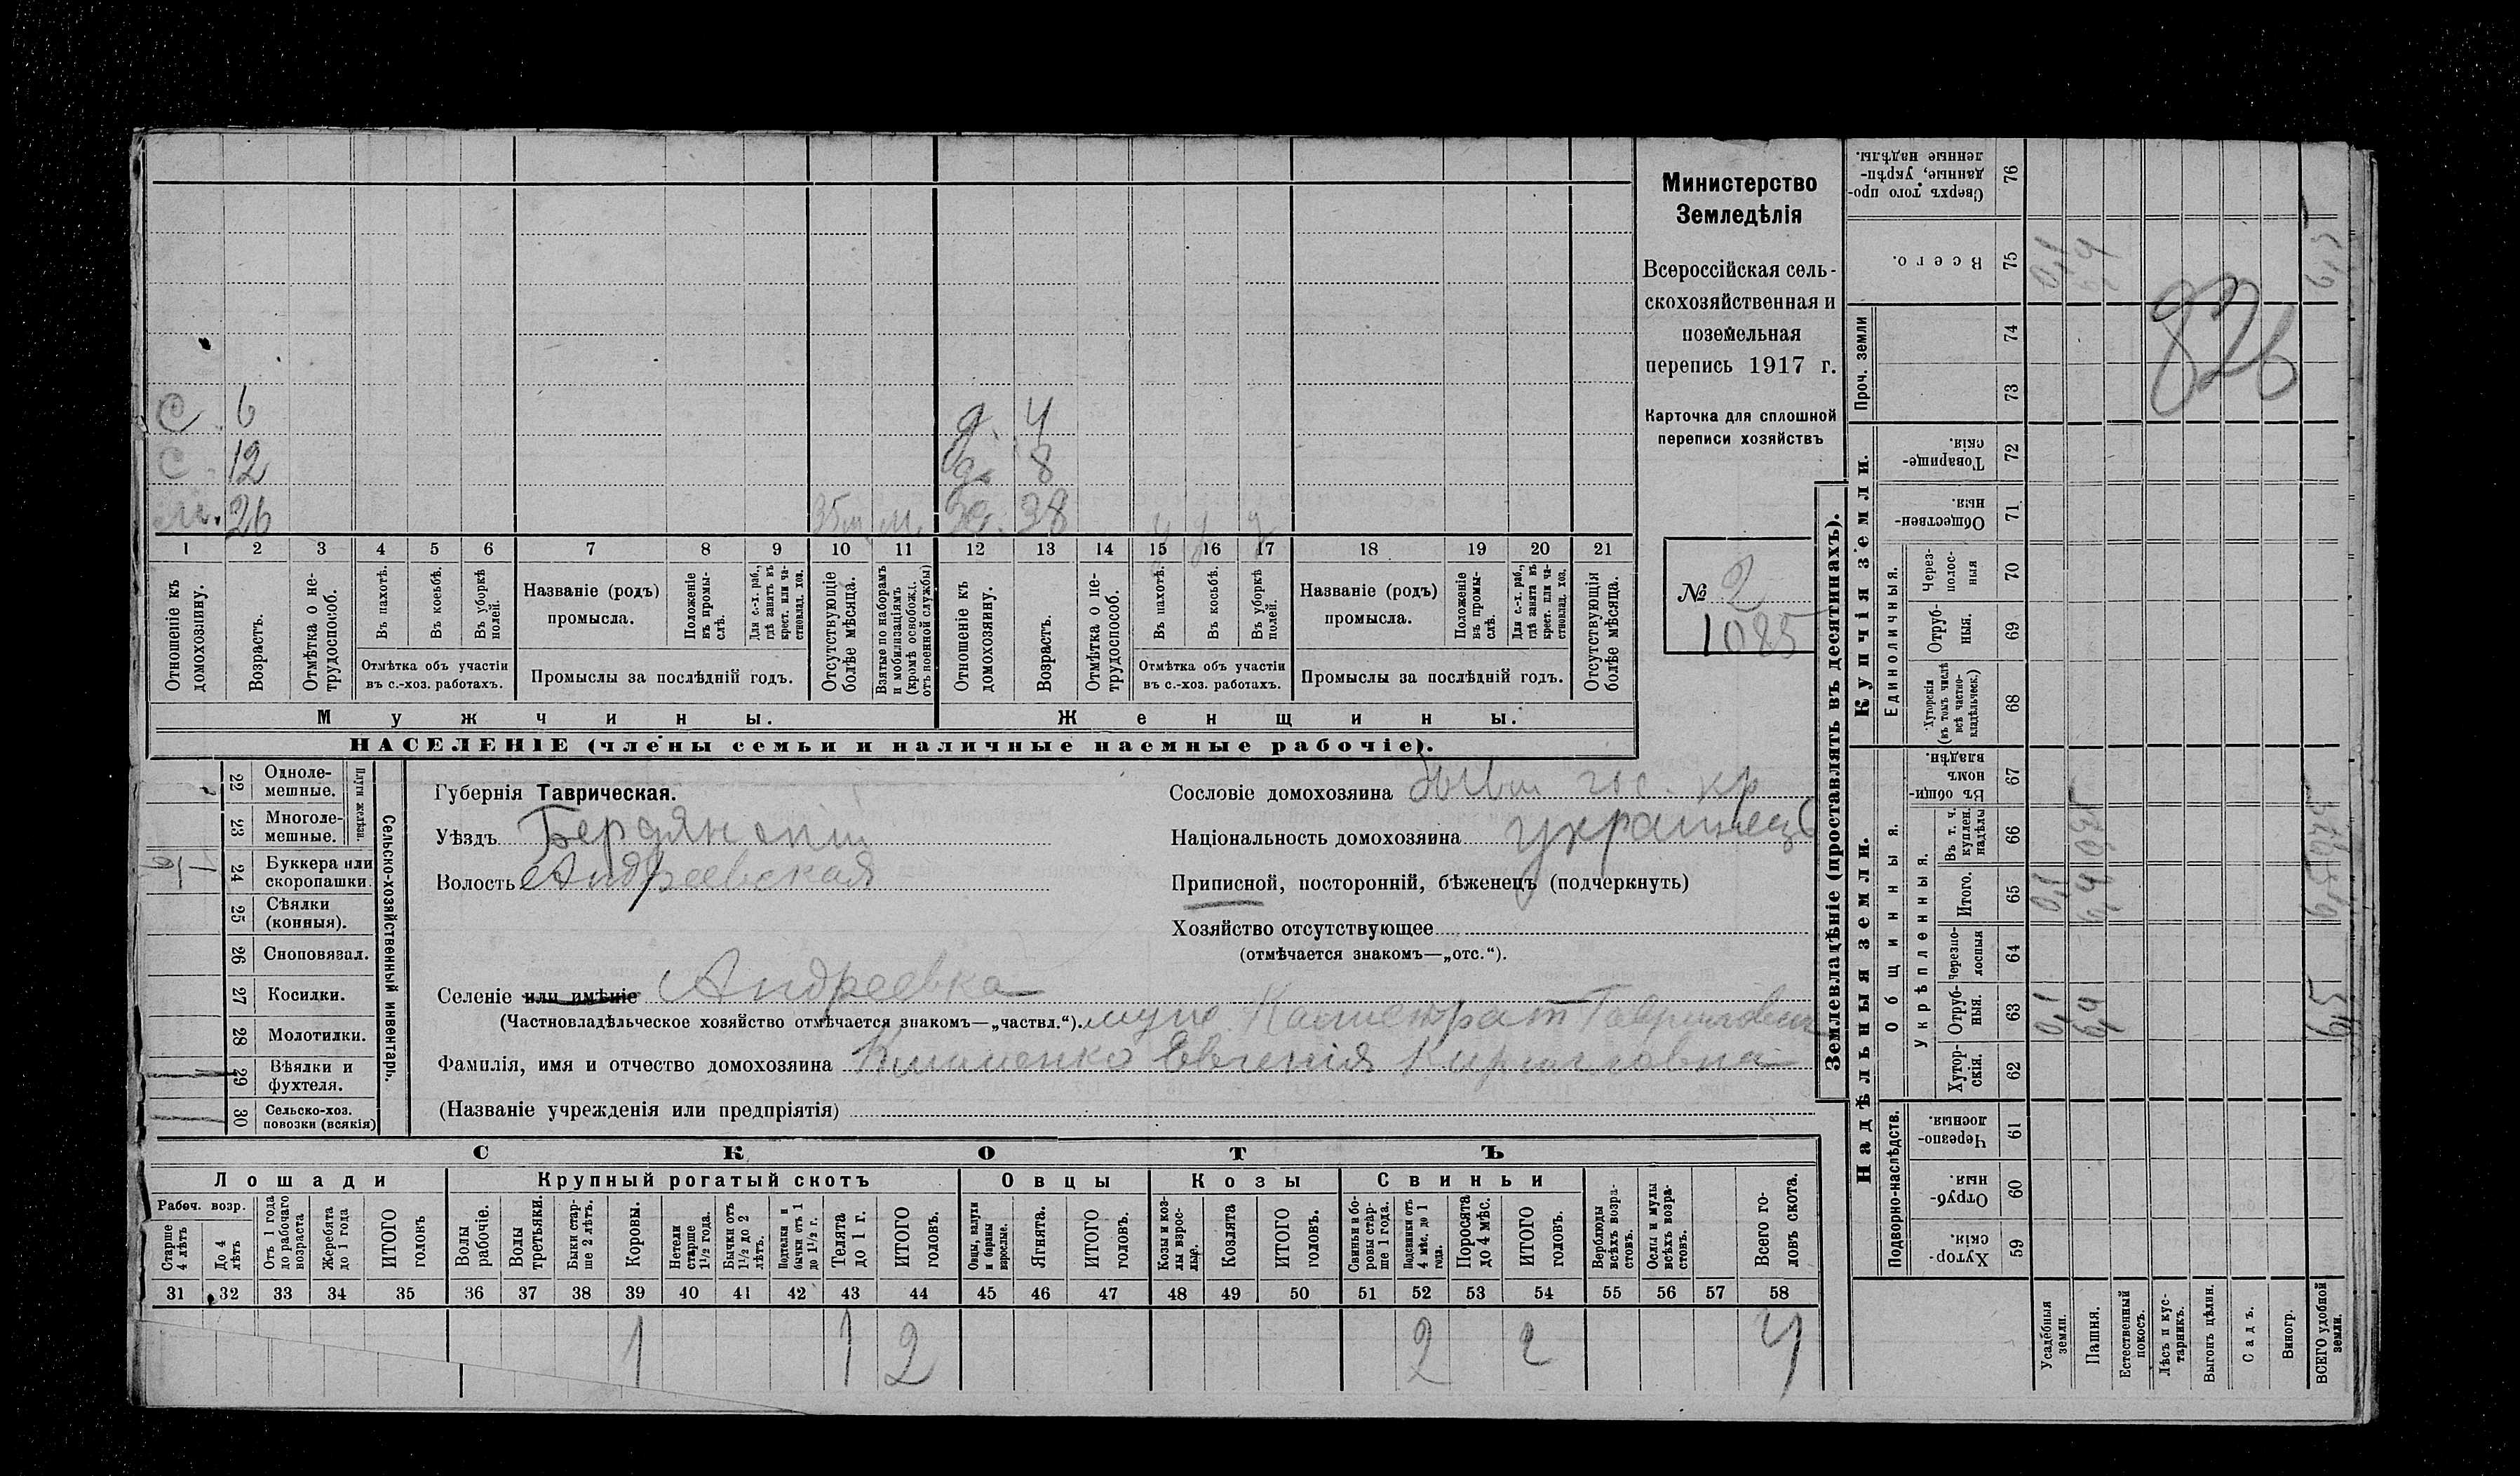 С 6
С. 12
м. 26 35 м м.
д. 4
д. 8
38 у у у
1 2 3 4 5 6 7 8 9 10 11 12 13 14 15 16 17 18 19 20 21
Отношеніе къ домохозяину.
Возрастъ.
Отмѣтка о не-
трудоспособ.
Въ пахотѣ.
Въ косьбѣ.
Въ уборкѣ
полей.
Отмѣтка объ участіи
въ с.-хоз. работахъ.
Названіе (родъ)
промысла.
Положеніе
въ промы-
слѣ.
Для с.-х. раб.,
гдѣ занятъ въ
крест. или ча-
стновлад. хоз.
Промыслы за послѣдній годъ.
Отсутствующіе
болѣе мѣсяца.
Взятые по наборамъ
и мобилизаціямъ
(кромѣ освобожд.
отъ военной службы)
Отношеніе къ
домохозяину.
Возрастъ.
Отмѣтка о не-
трудоспособ.
Въ пахотѣ.
Въ косьбѣ.
Въ уборкѣ
полей.
Отмѣтка объ участіи
въ с.-хоз. работахъ.
Названіе (родъ)
промысла.
Положеніе
въ промы-
слѣ.
Для с.-х. раб.,
гдѣ занята въ
крест. или ча-
стновлад. хоз.
Промыслы за послѣдній годъ.
Отсутствующія
болѣе мѣсяца.
Мужчины.
Женщины.
НАСЕЛЕНІЕ (члены семьи и наличные наемные рабочіе).
Министерство
Земледѣлія
Всероссійская сель-
скохозяйственная и
поземельная
перепись 1917 г.
Карточка для сплошной
переписи хозяйствъ
№ 2
1085
22 Одноле-
мешные.
23 Многоле-
мешные.
Плуги желѣзн.
24 Буккера или
скоропашки.
25 Сѣялки
(конныя).
26 Сноповязал.
27 Косилки.
28 Молотилки.
29 Вѣялки и
фухтеля.
30 Сельско-хоз.
повозки (всякія)
Сельско-хозяйственный инвентарь.
Губернія Таврическая.
Уѣздъ Бердянскій
Волость Андреевская
Селеніе или имѣніе Андреевка
(Частновладѣльческое хозяйство отмѣчается знакомъ—„частвл.“). мужъ Калистратъ Гавриловичъ
Фамилія, имя и отчество домохозяина Клименко Евгенія Кирилловна
(Названіе учрежденія или предпріятія)
Сословіе домохозяина бывш гос. кр
Національность домохозяина украинецъ
Приписной, посторонній, бѣженецъ (подчеркнуть)
Хозяйство отсутствующее
(отмѣчается знакомъ—„отс.“).
СКОТЪ
Лошади
Крупный рогатый скотъ
Овцы
Козы
Свиньи
Рабоч. возр.
Старше
4 лѣтъ
До 4
лѣтъ
Отъ 1 года
до рабочаго
возраста
Жеребята
до 1 года
ИТОГО
головъ
Волы
рабочіе.
Волы
третьяки.
Быки стар-
ше 2 лѣтъ.
Коровы.
Нетели
старше
1½ года.
Бычки отъ
1½ до 2
лѣтъ.
Подтелки и
бычки отъ 1
до 1½ г.
Телята
до 1 г.
ИТОГО
головъ.
Овцы, валухи
и бараны
взрослые.
Ягнята.
ИТОГО
головъ.
Козы и коз-
лы взрос-
лые.
Козлята
ИТОГО
головъ.
Свиньи и бо-
ровы стар-
ше 1 года.
Подсвинки отъ
4 мѣс. до 1
года.
Поросята
до 4 мѣс.
ИТОГО
головъ.
Верблюды
всѣхъ возра-
стовъ.
Ослы и мулы
всѣхъ возра-
стовъ.
Всего го-
ловъ скота.
31 32 33 34 35 36 37 38 39 40 41 42 43 44 45 46 47 48 49 50 51 52 53 54 55 56 57 58
1 1 2 2 2 4
Землевладѣніе (проставлять въ десятинахъ).
Надѣльныя земли.
Купчія земли.
Проч. земли
Подворно-наслѣдств.
Общинныя.
Укрѣпленныя.
Единоличныя.
Сверхъ того про-
данные, укрѣп-
ленные надѣлы.
76
Всего.
75 0,1
74
73
826
Товарище-
скія.
72
Обществен-
ныя.
71
Через-
полос-
ныя
70
Отруб-
ныя.
69
Хуторскія
(въ томъ числѣ
всѣ частно-
владѣльческ.)
68
Въ общин-
номъ
владѣн.
67
Въ т. ч.
куплен.
надѣлы
66
Итого.
65 0,1
Черезпо-
лосныя
64
Отруб-
ныя.
63 0,1
Хутор-
скія.
62
Черезпо-
лосныя.
61
Отруб-
ныя.
60
Хутор-
скія.
59
Усадебныя
земли.
Пашня.
Естественный
покосъ.
Лѣсъ и кус-
тарникъ.
Выгонъ цѣлин.
Садъ.
Виногр.
ВСЕГО удобной
земли.